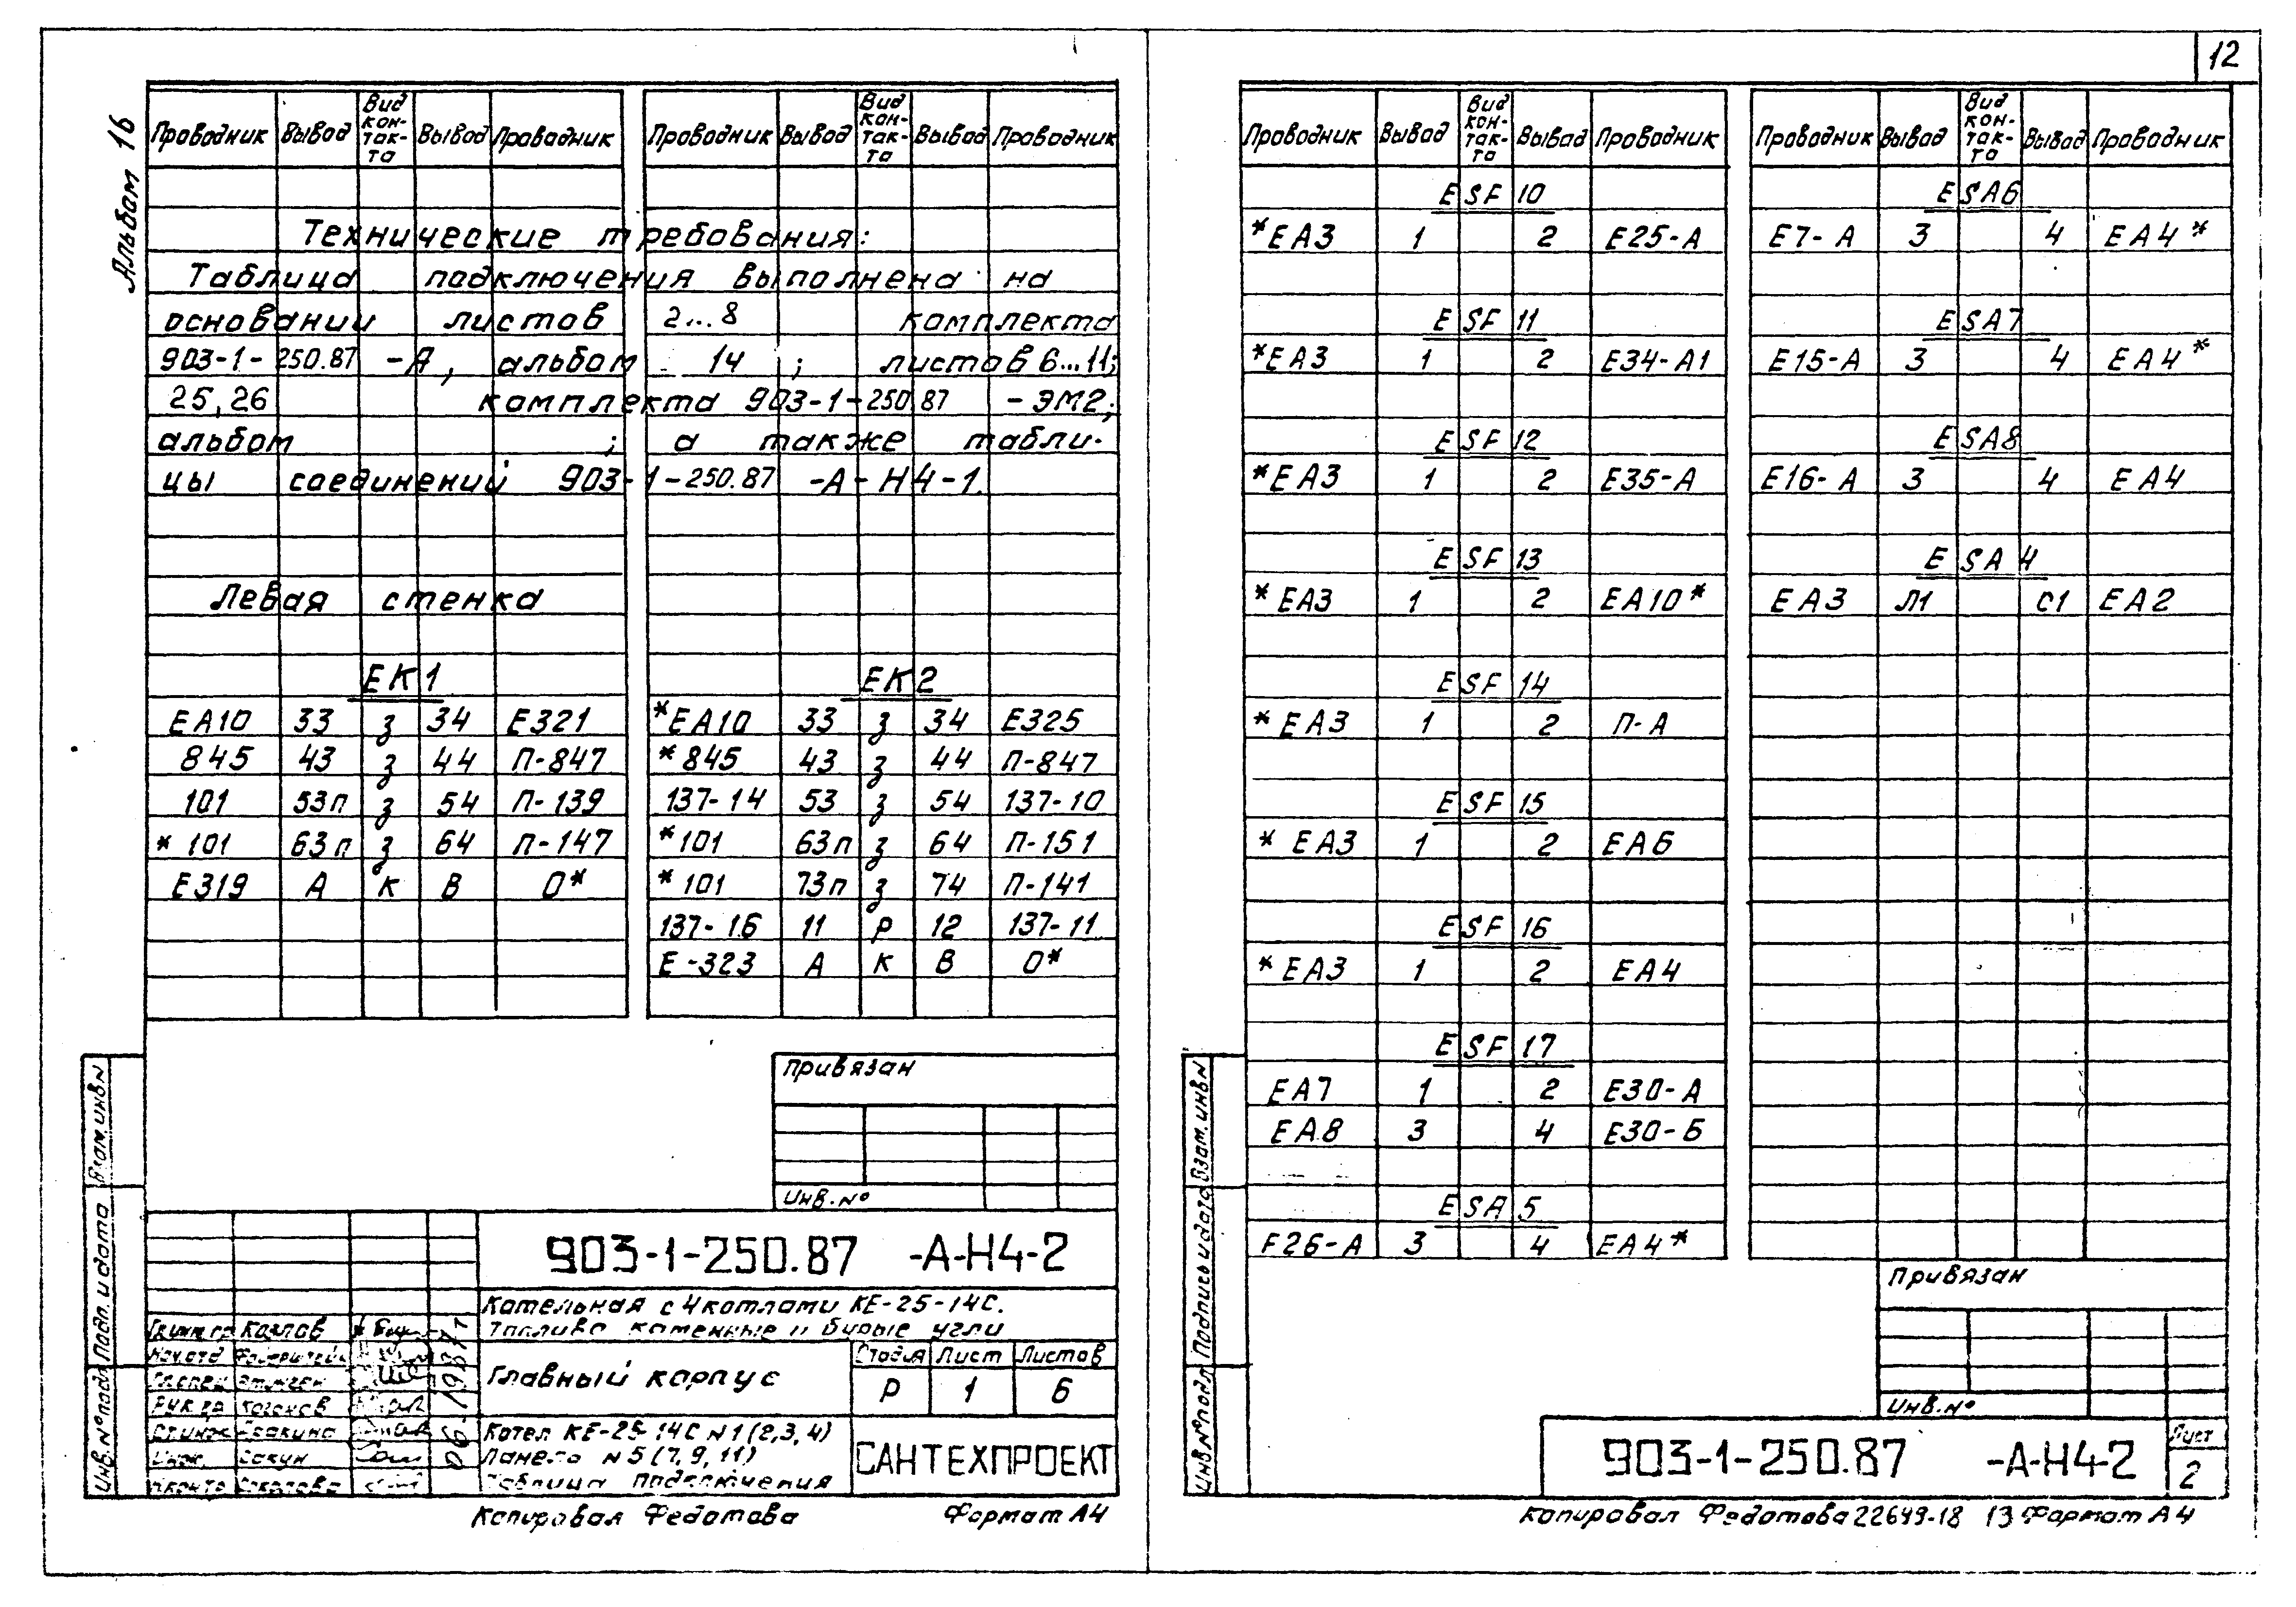 12
Альбом 16
Проводник Вывод Вид кон-так-та Вывод Проводник Проводник Вывод Вид кон-так-та Вывод Проводник
Технические требования:
Таблица подключения выполнена на
основании листов 2...8 комплекта
903-1-250.87 -А, альбом 14 ; листов 6...11;
25,26 комплекта 903-1-250.87 -ЭМ2;
альбом ; а также табли-
цы соединений 903-1-250.87 -А-Н4-1.
Левая стенка
ЕК1 ЕК2
ЕА10 33 з 34 Е321 *ЕА10 33 з 34 Е325
845 43 з 44 П-847 *845 43 з 44 П-847
101 53п з 54 П-139 137-14 53 з 54 137-10
*101 63п з 64 П-147 *101 63п з 64 П-151
Е319 А К В 0* *101 73п з 74 П-141
137-16 11 Р 12 137-11
Е-323 А К В 0*
Привязан
Инв.№
903-1-250.87 -А-Н4-2
Котельная с 4 котлами КЕ-25-14С.
Топливо каменные и бурые угли
Козлов
Главный корпус
Стадия Лист Листов
Р 1 6
06.1987г
Котел КЕ-25-14С №1(2,3,4)
Панель №5(7,9,11)
Таблица подключения
САНТЕХПРОЕКТ
Инв.№подл Подп. и дата Взам.инв№
Копировал Федотова Формат А4
Проводник Вывод Вид кон-так-та Вывод Проводник Проводник Вывод Вид кон-так-та Вывод Проводник
ESF 10 ESA6
*ЕА3 1 2 Е25-А Е7-А 3 4 ЕА4*
ESF 11 ESA7
*ЕА3 1 2 Е34-А1 Е15-А 3 4 ЕА4*
ESF 12 ESA8
*ЕА3 1 2 Е35-А Е16-А 3 4 ЕА4
ESF 13 ESA 4
*ЕА3 1 2 ЕА10* ЕА3 Л1 С1 ЕА2
ESF 14
*ЕА3 1 2 П-А
ESF 15
*ЕА3 1 2 ЕА6
ESF 16
*ЕА3 1 2 ЕА4
ESF 17
ЕА7 1 2 Е30-А
ЕА8 3 4 Е30-Б
ESA 5
Е26-А 3 4 ЕА4*
Привязан
Инв.№
903-1-250.87 -А-Н4-2
Лист
2
Инв№подл Подпись и дата Взам.инв№
Копировал Федотова 22649-18 13 Формат А4